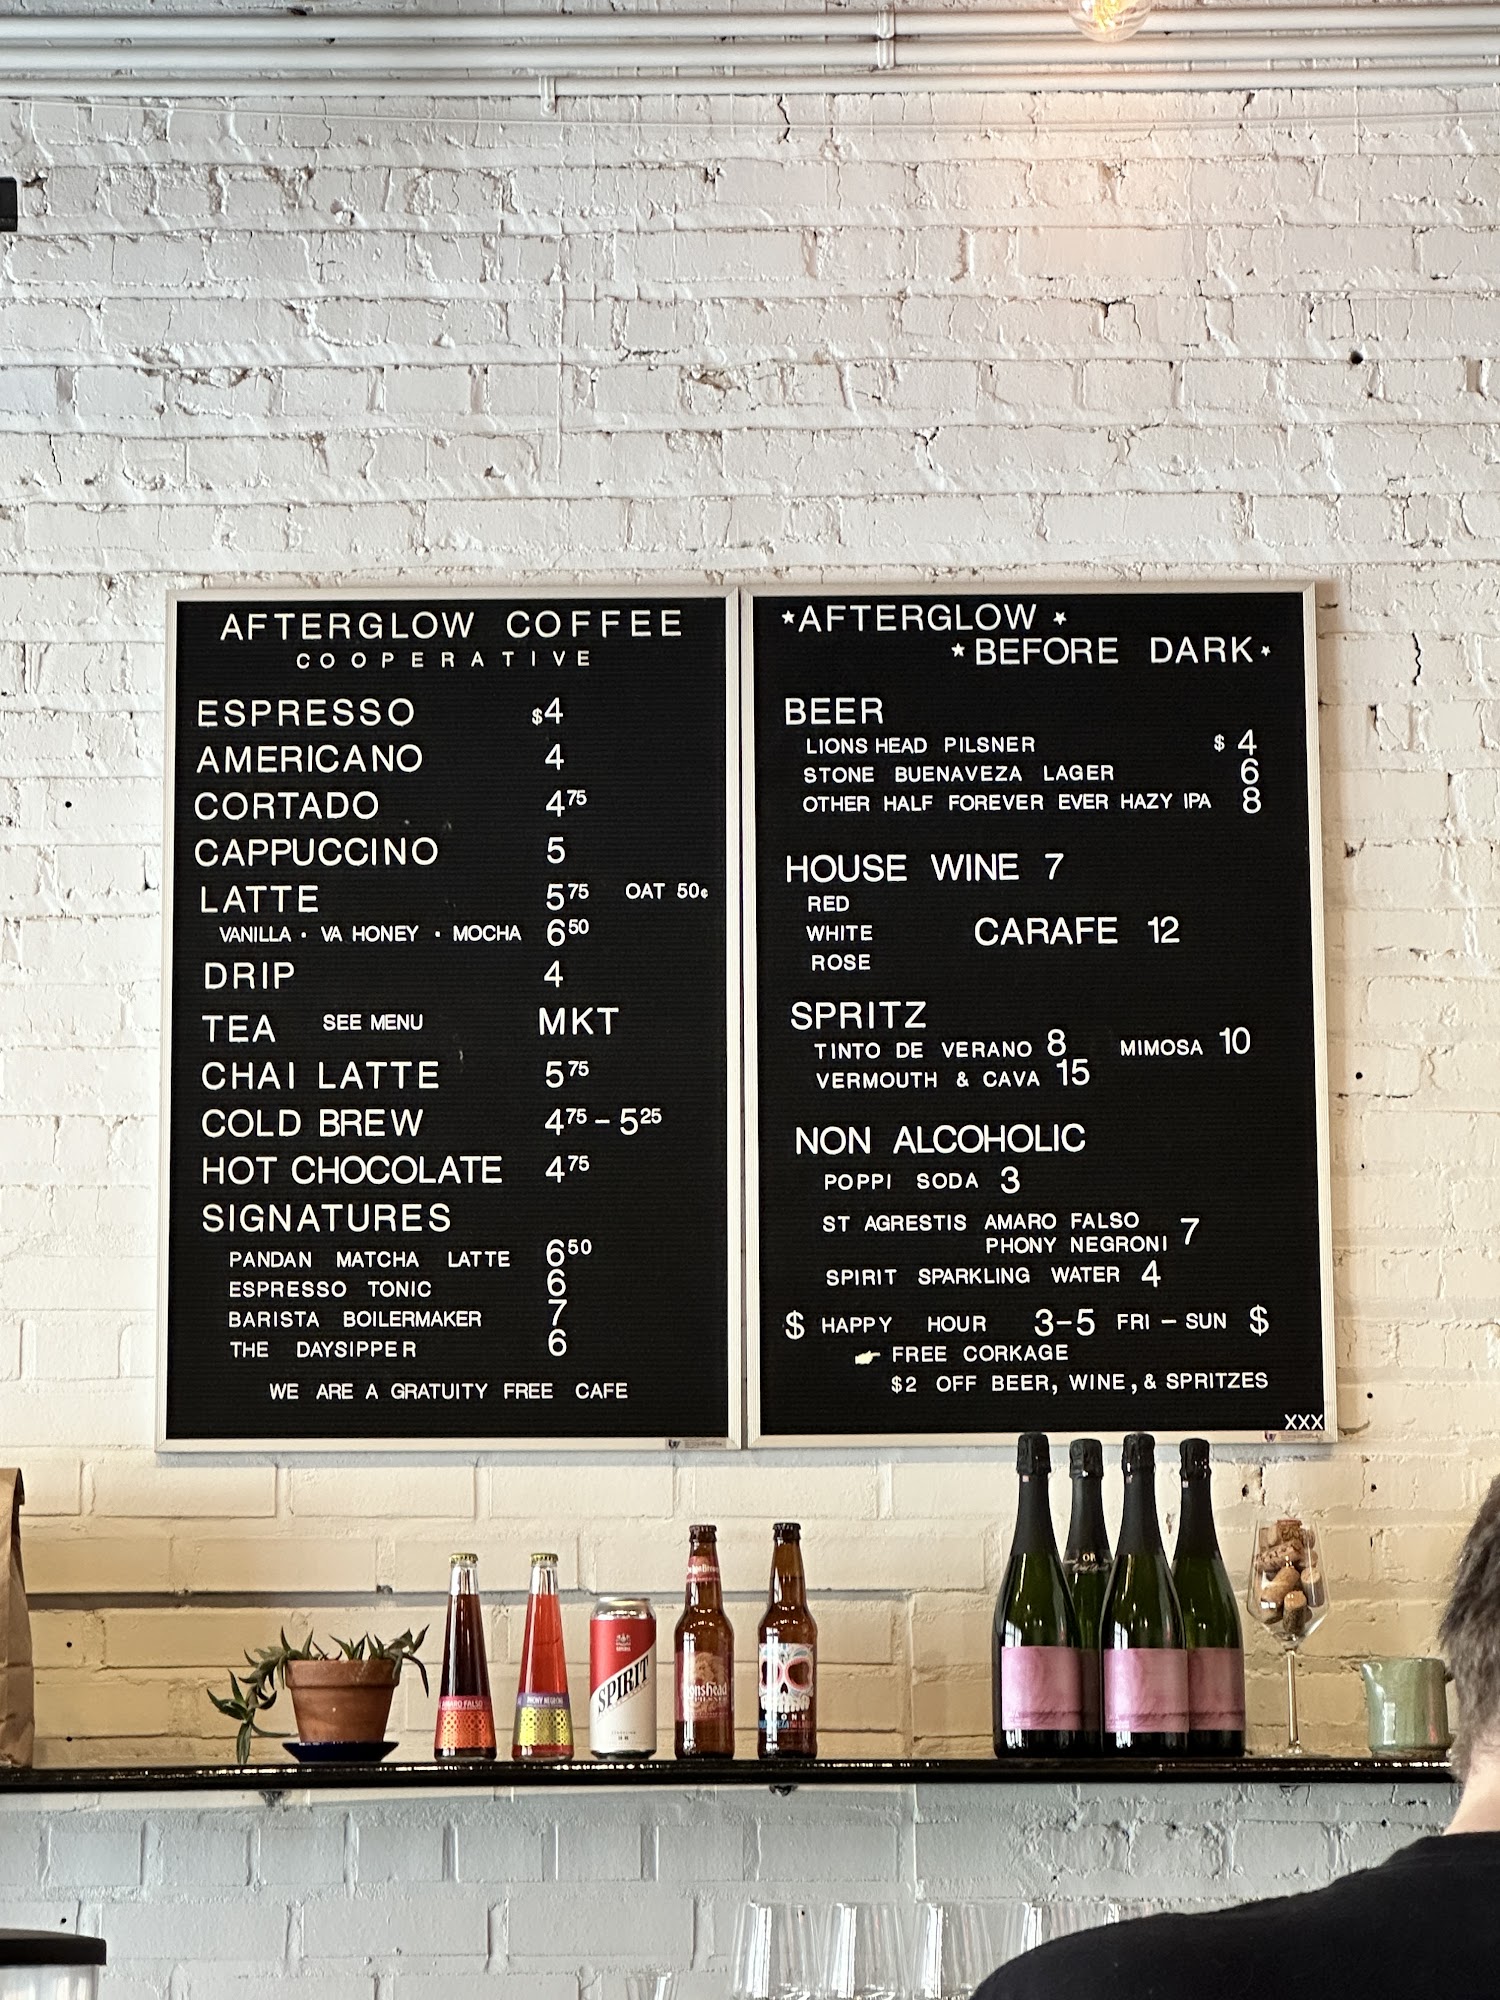 AFTERGLOW COFFEE
COOPERATIVE
ESPRESSO $4
AMERICANO 4
CORTADO 475
CAPPUCCINO 5
LATTE 575 OAT 50¢
VANILLA · VA HONEY · MOCHA 650
DRIP 4
TEA SEE MENU MKT
CHAI LATTE 575
COLD BREW 475 – 525
HOT CHOCOLATE 475
SIGNATURES
PANDAN MATCHA LATTE 650
ESPRESSO TONIC 6
BARISTA BOILERMAKER 7
THE DAYSIPPER 6
WE ARE A GRATUITY FREE CAFE
★AFTERGLOW★
★BEFORE DARK★
BEER
LIONS HEAD PILSNER $ 4
STONE BUENAVEZA LAGER 6
OTHER HALF FOREVER EVER HAZY IPA 8
HOUSE WINE 7
RED
WHITE CARAFE 12
ROSE
SPRITZ
TINTO DE VERANO 8 MIMOSA 10
VERMOUTH & CAVA 15
NON ALCOHOLIC
POPPI SODA 3
ST AGRESTIS AMARO FALSO
PHONY NEGRONI 7
SPIRIT SPARKLING WATER 4
$ HAPPY HOUR 3–5 FRI – SUN $
FREE CORKAGE
$2 OFF BEER, WINE, & SPRITZES
XXX
AMARO FALSO
PHONY NEGRONI
SPIRIT